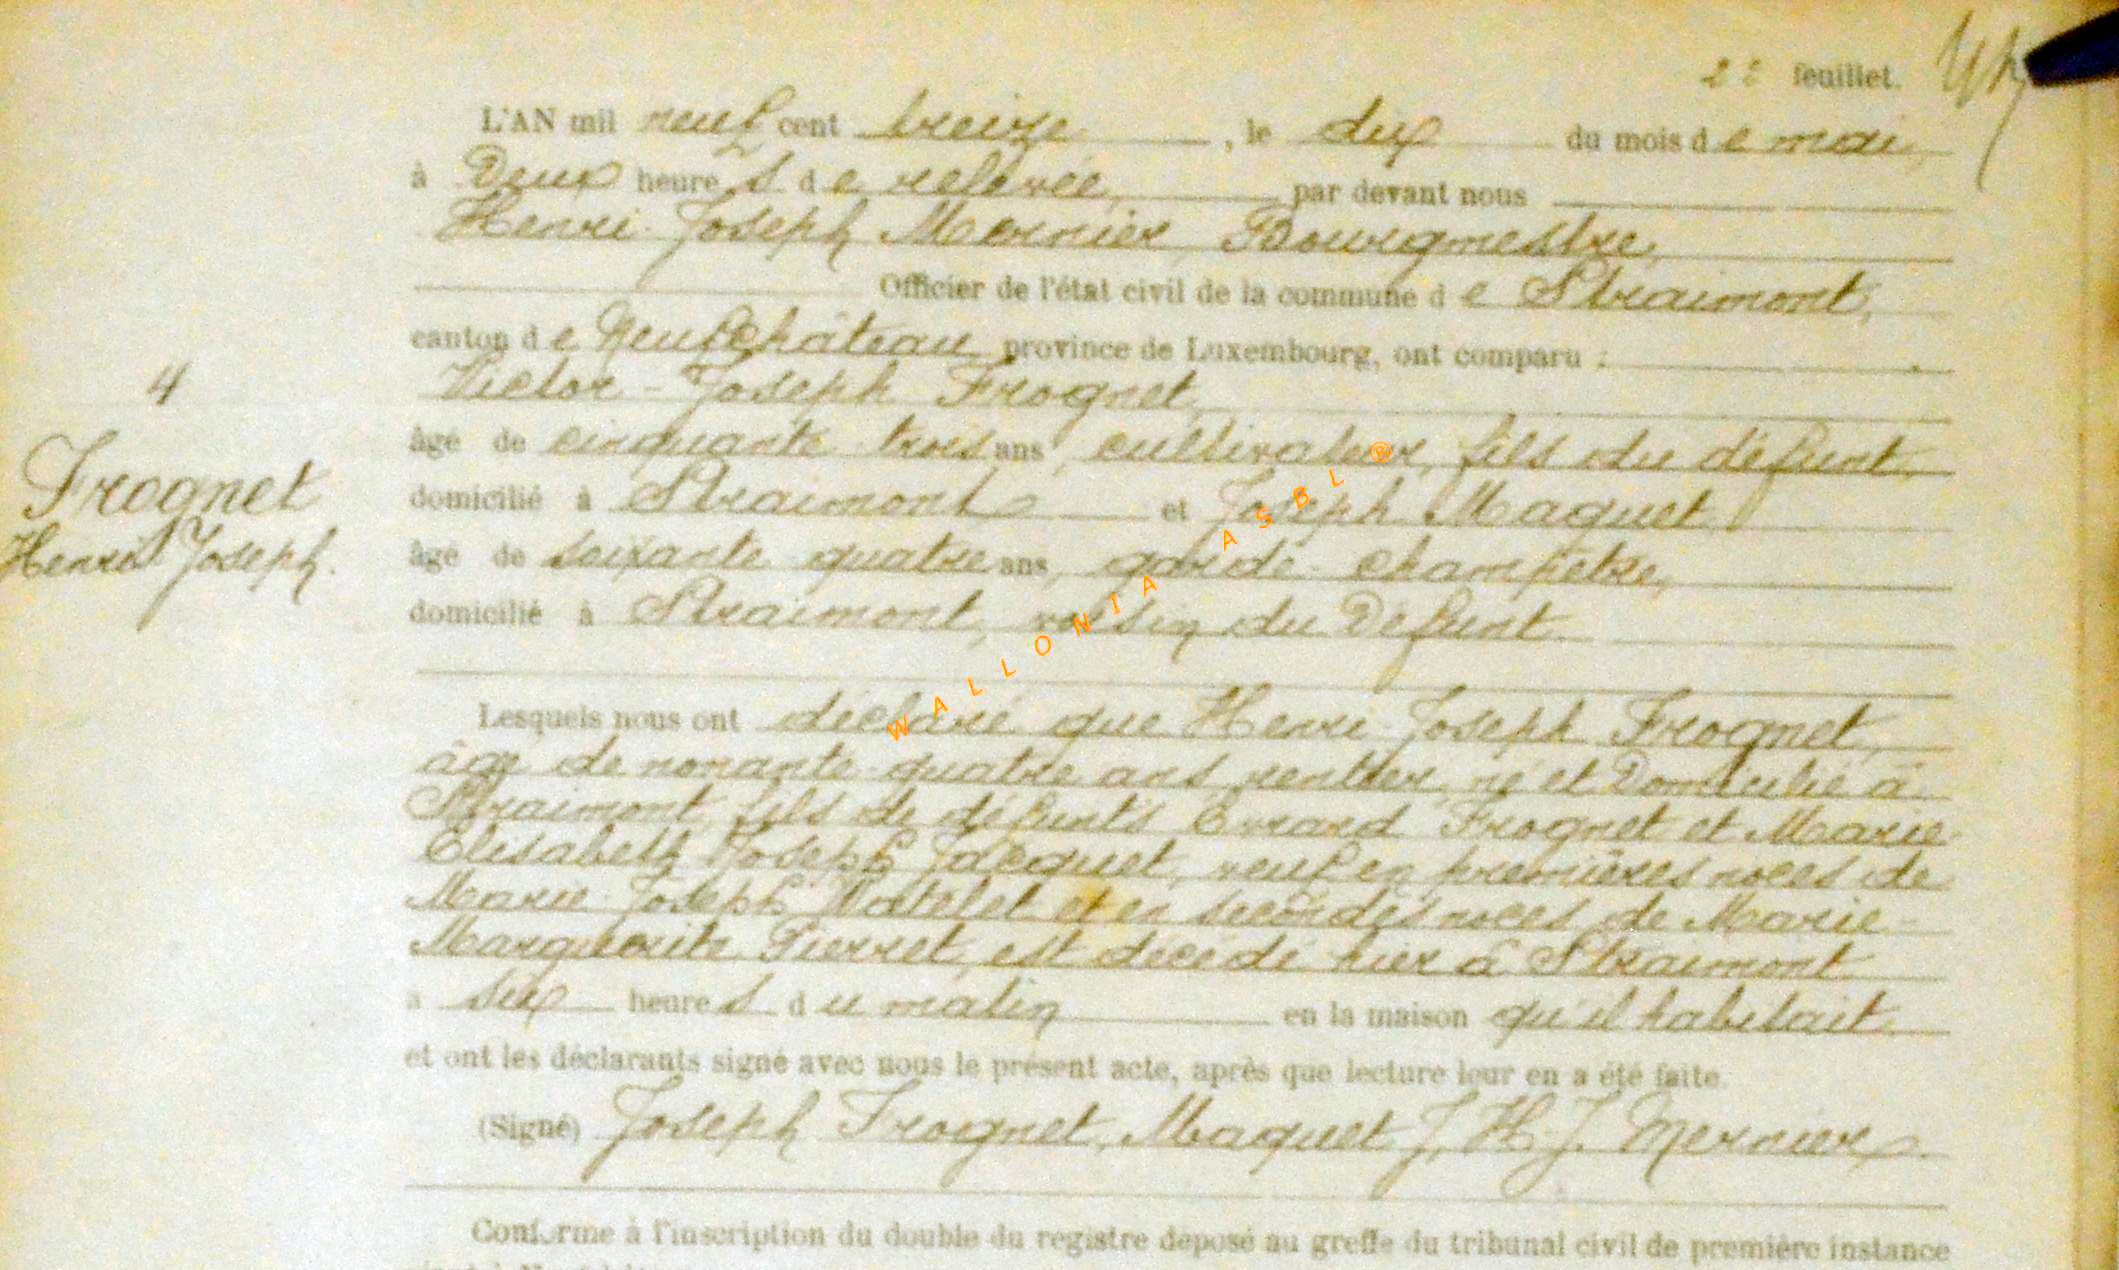 2e feuillet.
L'AN mil neuf cent treize, le dix du mois de mai,
à Deux heures de relevée, par devant nous
Henri-Joseph Mernier, Bourgmestre,
Officier de l'état civil de la commune de Straimont,
canton de Neufchâteau province de Luxembourg, ont comparu :
Victor-Joseph Frognet,
4
âgé de cinquante trois ans, cultivateur, fils du défunt,
Frognet
domicilié à Straimont et Joseph Maquet
Henri Joseph.
âgé de soixante quatre ans, garde-champêtre,
domicilié à Straimont, voisin du Défunt
WALLONIA ASBL ®
Lesquels nous ont déclaré que Henri-Joseph Frognet,
âgé de nonante-quatre ans, rentier, né et Domicilié à
Straimont, fils de défunts Evrard Frognet et Marie-
Elisabeth Joseph Jacquet, veuf en premières noces de
Marie-Joseph Watelet et en secondes noces de Marie-
Marguerite Pierret, est décédé hier à Straimont
à six heures du matin en la maison qu'il habitait
et ont les déclarants signé avec nous le présent acte, après que lecture leur en a été faite.
(Signé) Joseph Frognet, Maquet J, H.J. Mernier.
Conforme à l'inscription du double du registre déposé au greffe du tribunal civil de première instance